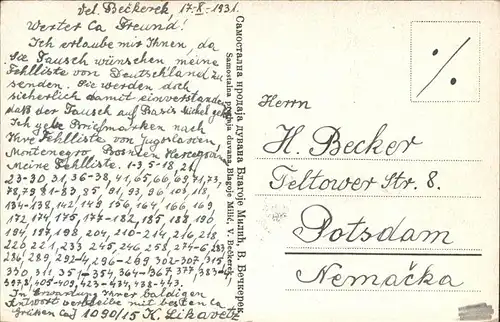 Vel. Bečkerek, 17-X-1931.
Werter Ca Freund!
Ich erlaube mir Ihnen, da
Sie Tausch wünschen meine
Fehlliste von Deutschland zu
senden. Sie werden doch
sicherlich damit einverstanden
daß der Tausch auf Basis Michel geht
Ich gebe Briefmarken nach
Ihre Fehlliste von Jugoslavien,
Montenegro Bosnien Hercegovina
Meine Fehlliste. 1-3, 5-18, 21,
23-30, 31, 36-38, 41, 65, 66, 69, 71, 73,
78, 79, 81-83, 85, 91, 93, 96, 103, 118,
134-138, 142, 149, 156, 164, 166, 169
172, 174, 175, 177-182, 185, 188, 190
194, 197, 198, 204, 210-214, 216, 218,
220, 221, 233, 245, 246, 258, 274-6, 283
286, 289, 292-4, 296-269, 302-307, 315
330, 311, 351-354, 364-367, 377, 383-
397, 8, 405-409, 423-434, 438-443.
In Erwartung Ihrer baldigen
Antwort verbleibe mit besten Ca
Grüßen Ca 1090/15 K. Likavetz
Самостална продаја дувана Благоје Милић, В. Бечкерек.
Samostalna prodaja duvana, Blagoje Milić, V. Bečkerek.
Herrn
H. Becker
Teltower Str. 8.
Potsdam
Nemačka